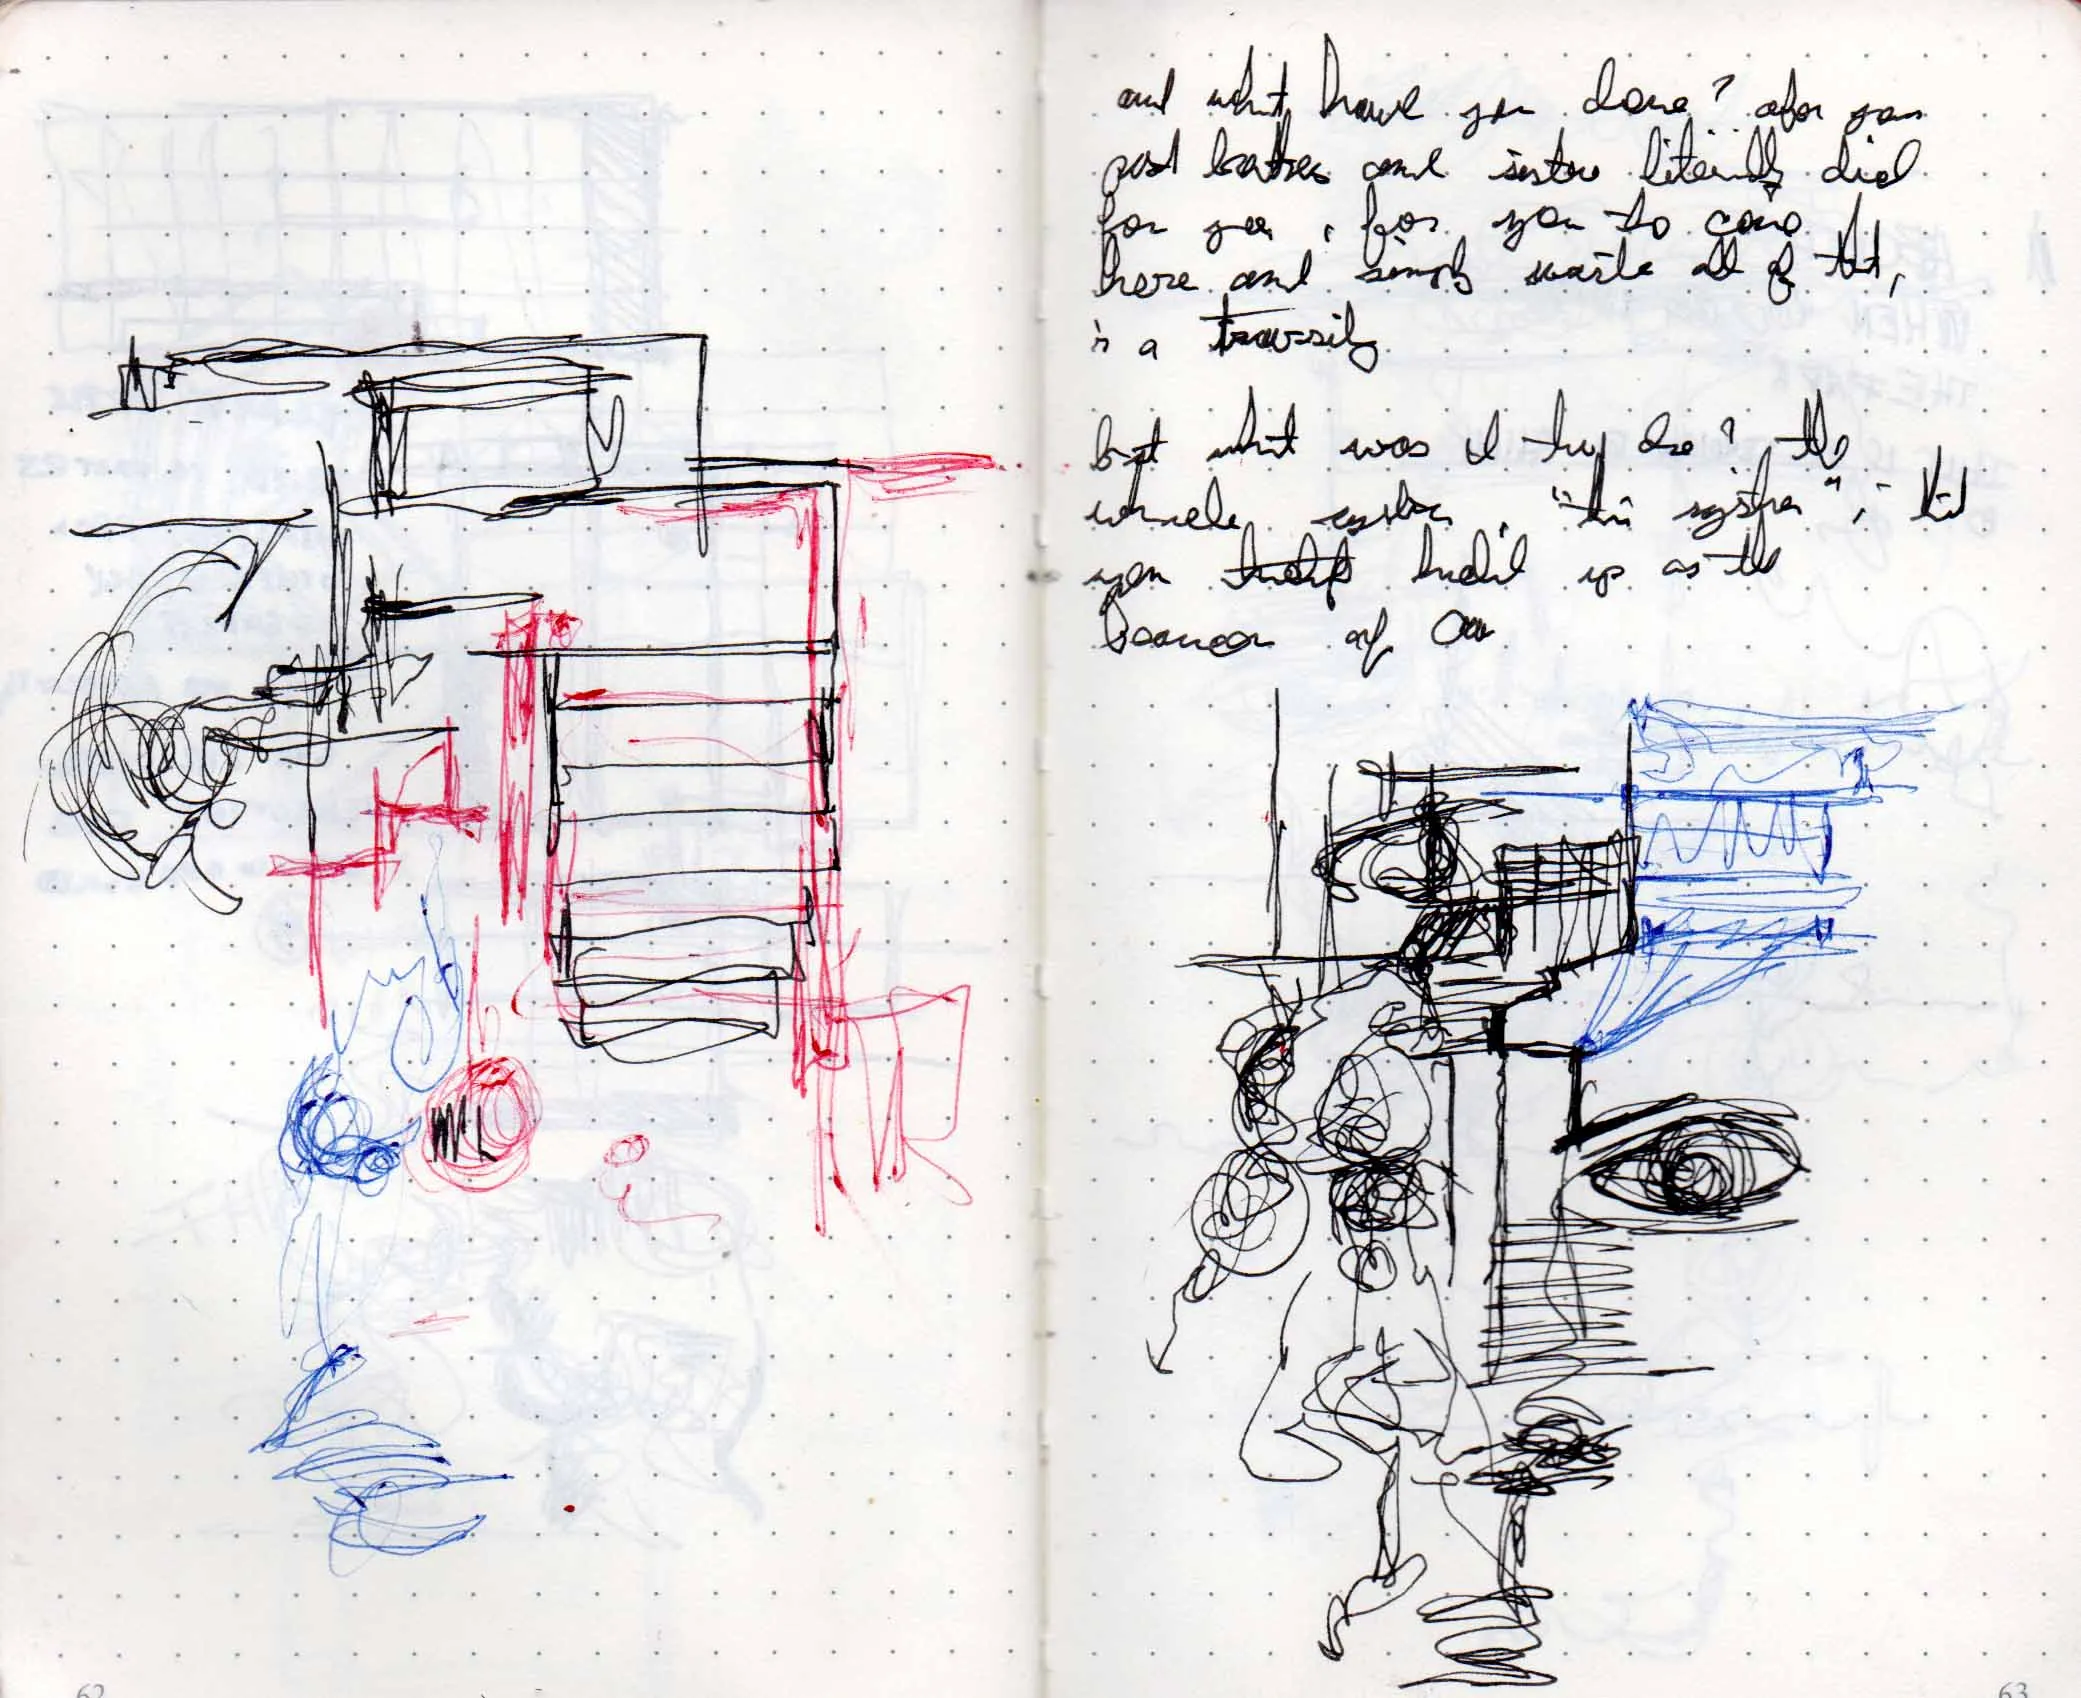 and what have you done? after you
past brothers and sisters literally died
for you, for you to come
here and simply waste all of that,
is a travesity
but what was I to do? the
whole system, "this system", that
you build up as the
of our
62
63